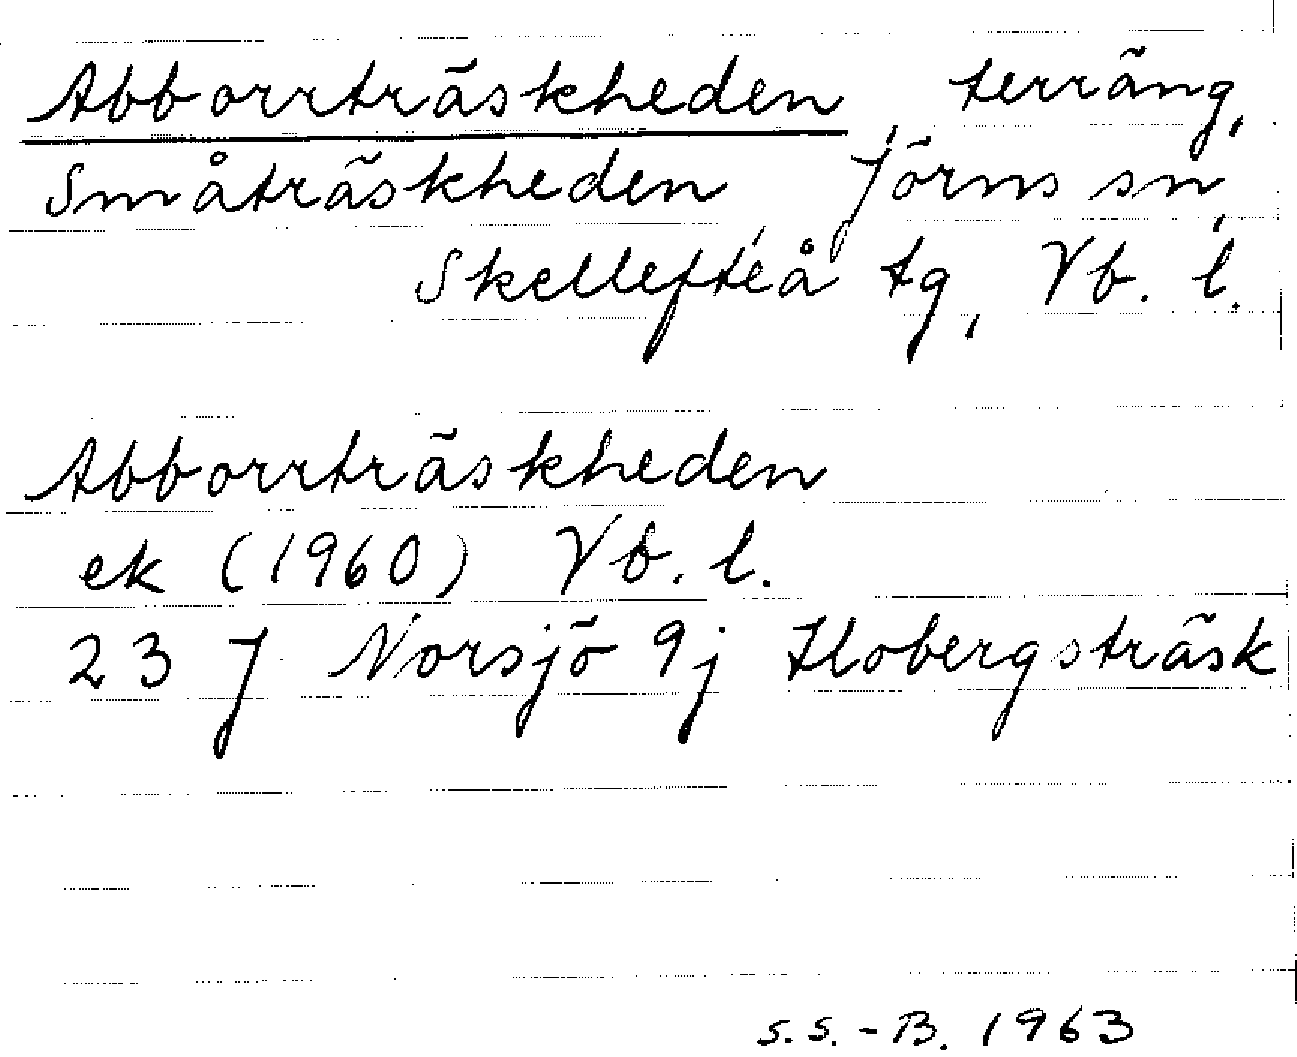 Abborrträskheden, terräng,
Småträskheden, Jörns sn,
Skellefteå tg, Vb. l.
Abborrträskheden
ek (1960) Vb. l.
23 J Norsjö 9j Hobergsträsk
S.S.-B. 1963